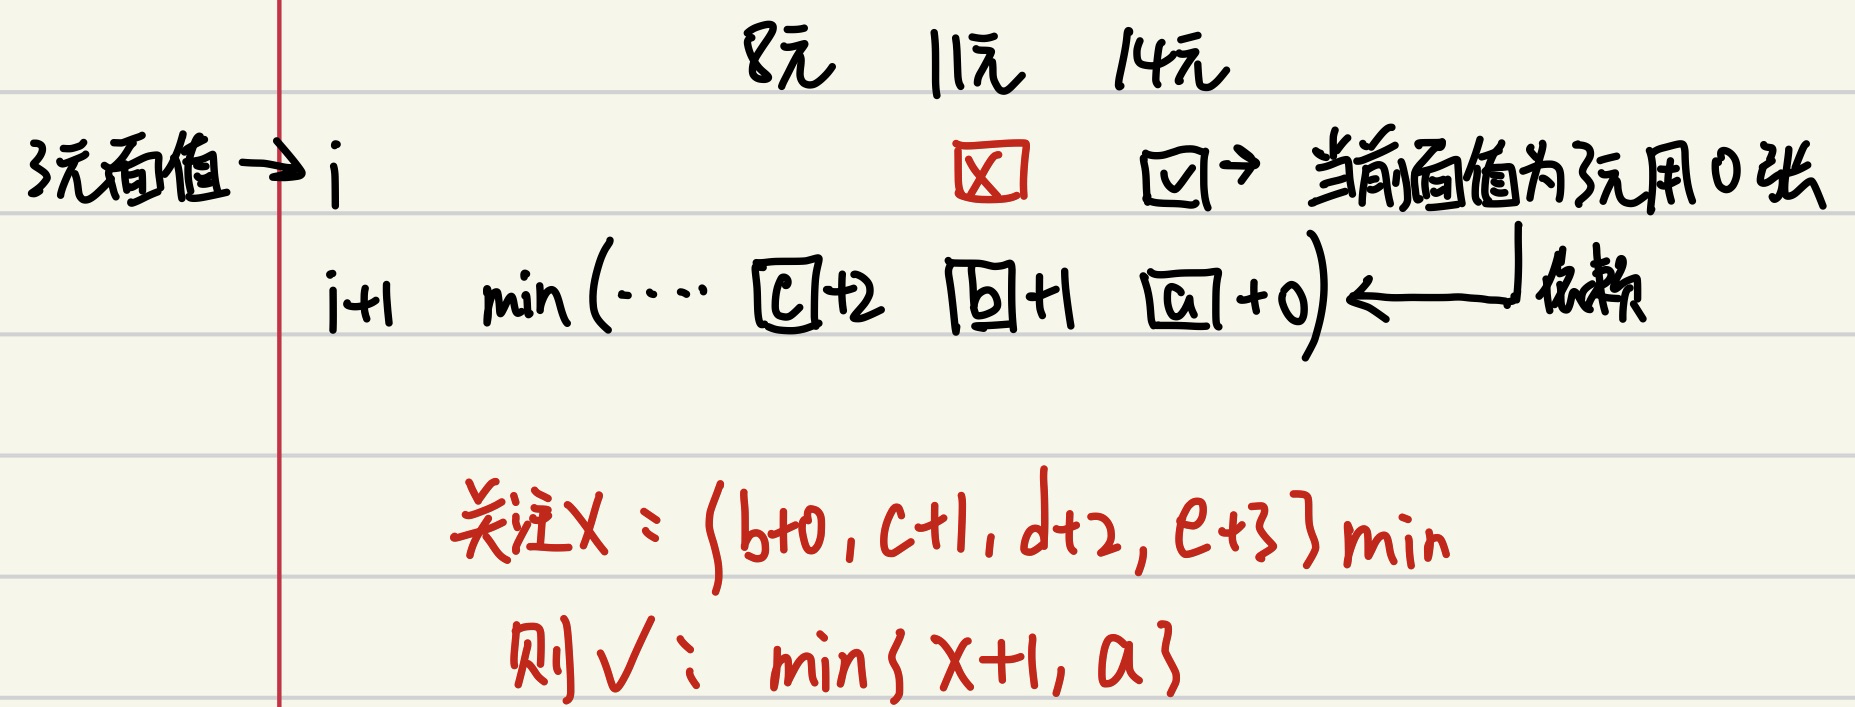 8元 11元 14元
3元面值→ i X √→ 当前面值为3元用0张
i+1 min(···· c+2 b+1 a+0) ← 依赖
关注X：{b+0, c+1, d+2, e+3} min
则√： min{X+1, a}